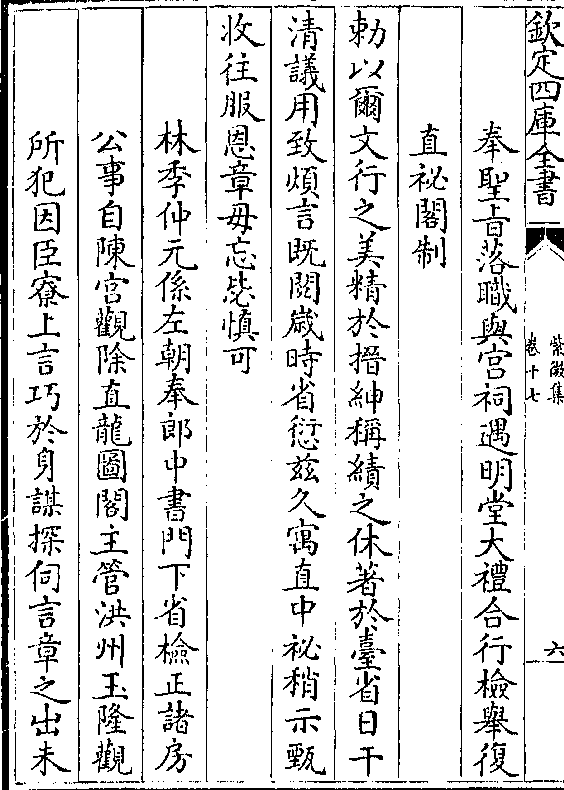 欽定四庫全書
紫微集
卷十七
六
奉聖旨落職與宫祠遇明堂大禮合行檢舉復
直祕閣制
勅以爾文行之美精於搢紳稱績之休著於臺省日干
清議用致煩言既閱歲時省愆兹久寓直中祕稍示甄
收往服恩章毋忘毖慎可
林季仲元係左朝奉郎中書門下省檢正諸房
公事自陳宫觀除直龍圖閣主管洪州玉隆觀
所犯因臣寮上言巧於身謀探伺言章之出未